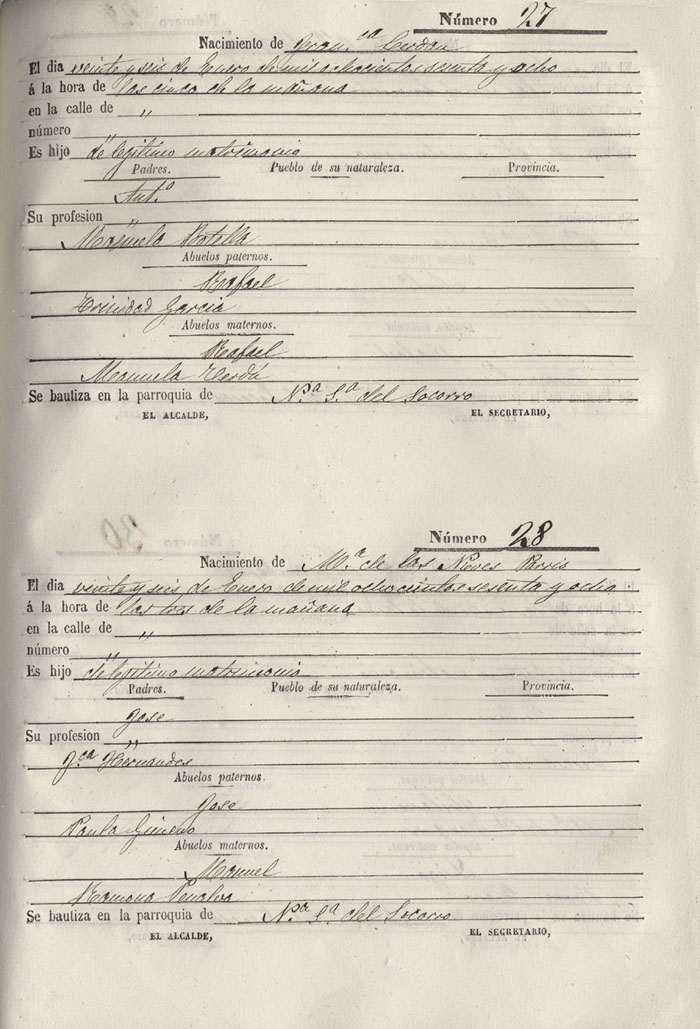 Número 27
Nacimiento de Fran.ca Cerdan
El dia veinte y seis de Enero de mil ochocientos sesenta y ocho
á la hora de las cinco de la mañana
en la calle de "
número "
Es hijo de legitimo matrimonio
Padres. Pueblo de su naturaleza. Provincia.
Ant.o
Su profesion "
Manuela Botella
Abuelos paternos.
Rafael
Trinidad Garcia
Abuelos maternos.
Rafael
Manuela Cerdá
Se bautiza en la parroquia de N.a S.a del Socorro
EL ALCALDE, EL SECRETARIO,
Número 28
Nacimiento de M.a de las Nieves
El dia veinte y seis de Enero de mil ochocientos sesenta y ocho
á la hora de las tres de la mañana
en la calle de "
número "
Es hijo de legitimo matrimonio
Padres. Pueblo de su naturaleza. Provincia.
Jose
Su profesion "
F.ca Hernandes
Abuelos paternos.
Jose
Paula Gimeno
Abuelos maternos.
Manuel
Ramona Penalva
Se bautiza en la parroquia de N.a S.a del Socorro
EL ALCALDE, EL SECRETARIO,